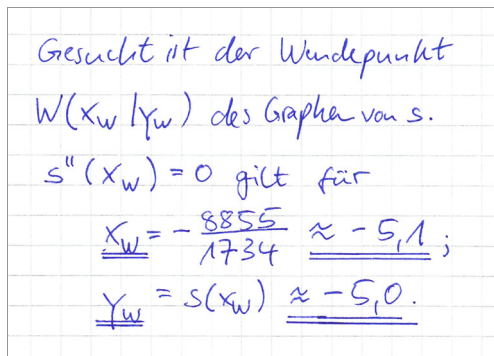 Gesucht ist der Wendepunkt
W(x_W | y_W) des Graphen von s.
s''(x_W) = 0 gilt für
x_W = - 8855/1734 ≈ -5,1 ;
y_W = s(x_W) ≈ -5,0.